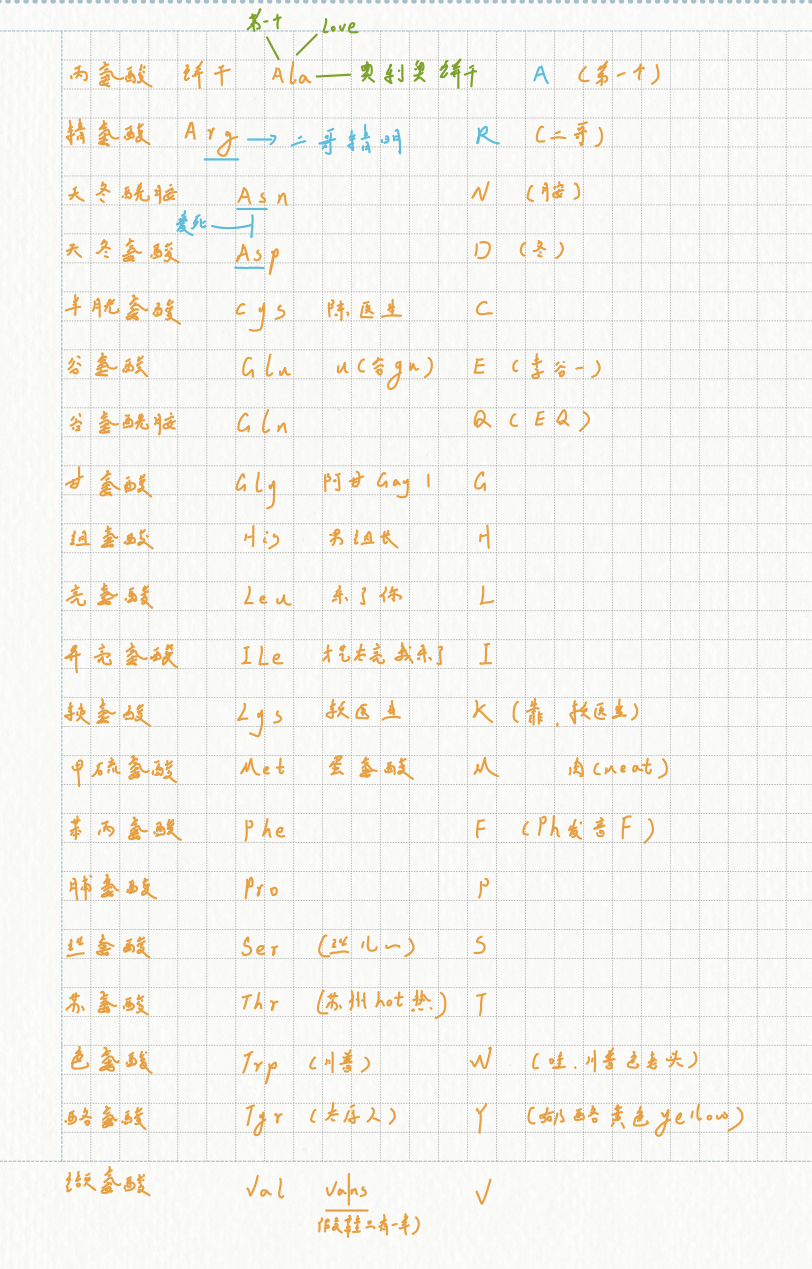 第一个 Love
丙氨酸 饼干 Ala 奥利奥饼干 A (第一个)
精氨酸 Arg → 二哥精明 R (二哥)
天冬酰胺 Asn N (胺)
爱死
天冬氨酸 Asp D (冬)
半胱氨酸 cys 陈医生 C
谷氨酸 Glu u(谷gu) E (李谷一)
谷氨酰胺 Gln Q (EQ)
甘氨酸 Gly 阿甘Gay1 G
组氨酸 His 男组长 H
亮氨酸 Leu 来了你 L
异亮氨酸 ILe 我来了 I
赖氨酸 Lys 赖医生 K (靠,赖医生)
甲硫氨酸 Met 蛋氨酸 M 肉(meat)
苯丙氨酸 Phe F (Ph发音F)
脯氨酸 Pro P
丝氨酸 Ser (丝儿~) S
苏氨酸 Thr (苏州hot热) T
色氨酸 Trp (川普) W (哇,川普色老头)
酪氨酸 Tyr Y (奶酪黄色yellow)
缬氨酸 Val Vans V